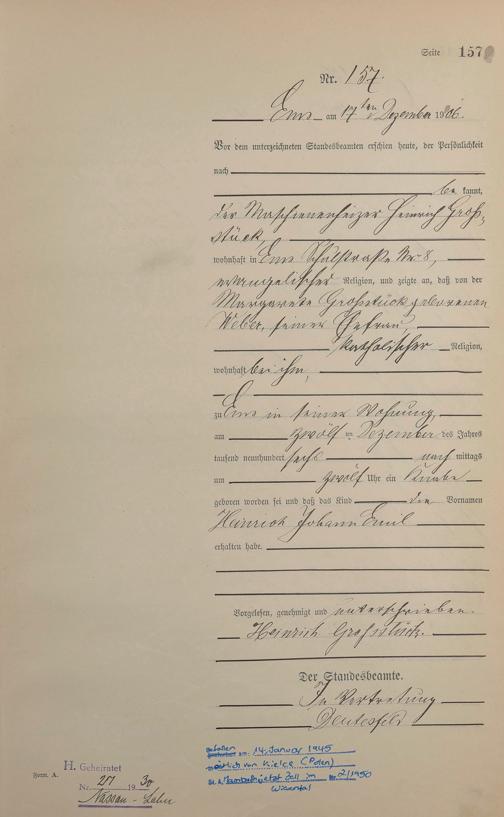 Seite 157
Nr. 157.
Ems am 17ten Dezember 1906.
Vor dem unterzeichneten Standesbeamten erschien heute, der Persönlichkeit
nach
be kannt,
der Maschienenheizer Heinrich Groß-
stück,
wohnhaft in Ems Schulstraße Nr 8,
evangelischer Religion, und zeigte an, daß von der
Margarete Großstück geborenen
Weber, seiner Ehefrau,
katholischer Religion,
wohnhaft bei ihm,
zu Ems in seiner Wohnung,
am zwölf ten Dezember des Jahres
tausend neunhundert sechs nach mittags
um zwölf Uhr ein Knabe
geboren worden sei und daß das Kind die Vornamen
Heinrich Johann Emil
erhalten habe.
Vorgelesen, genehmigt und unterschrieben.
Heinrich Großstück.
Der Standesbeamte.
In Vertretung
gefallen am: 14. Januar 1945
östlich von Kielce (Polen)
2/1950
H. Geheiratet
Form. A.
Nr. 27 1930
Nassau - Lahn